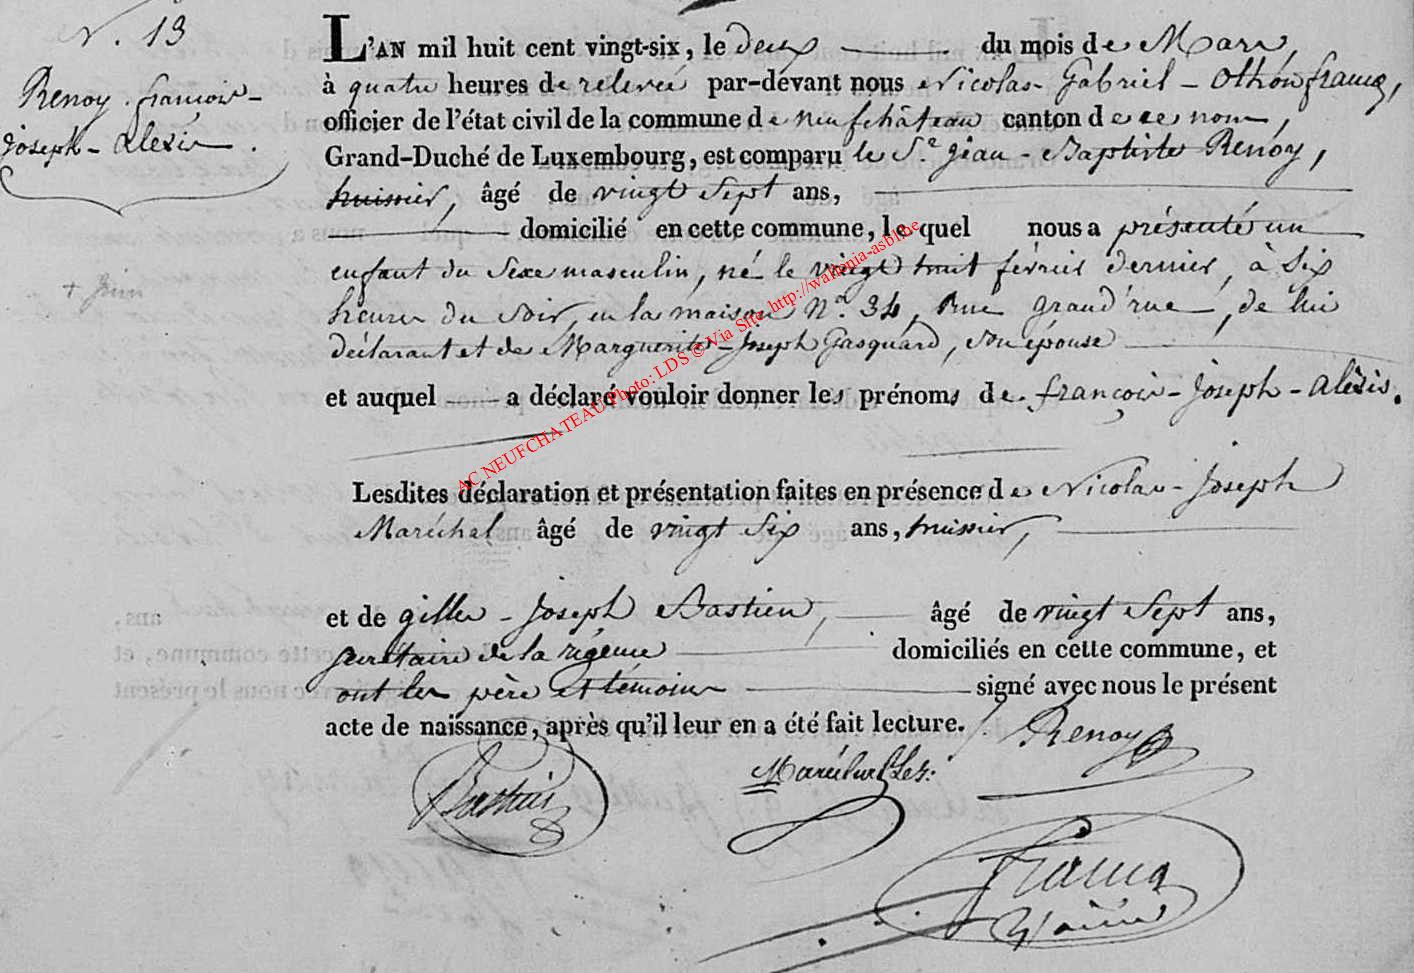 N. 13
Renoy françois-
joseph-alexis.
L'AN mil huit cent vingt-six, le deux du mois de Mars,
à quatre heures de relevée par-devant nous Nicolas-Gabriel-Othon francq,
officier de l'état civil de la commune de neufchâteau canton de ce nom,
Grand-Duché de Luxembourg, est comparu le Sr. jean-Baptiste Renoy,
huissier, âgé de vingt Sept ans,
domicilié en cette commune, lequel nous a présenté un
enfant du Sexe masculin, né le vingt huit février dernier, à Six
heures du Soir, en la maison No. 34, Rue grand'rue, de lui
déclarant et de Marguerite-Joseph Gasquard, son épouse
et auquel a déclaré vouloir donner les prénoms de françois-joseph-alèxis.
Lesdites déclaration et présentation faites en présence de Nicolas-Joseph
Maréchal âgé de vingt Six ans, huissier,
et de gilles-Joseph Bastien, âgé de vingt Sept ans,
secrétaire de la régence domiciliés en cette commune, et
ont les père et témoins signé avec nous le présent
acte de naissance, après qu'il leur en a été fait lecture. Renoy
Bastien
francq
AC NEUFCHATEAU Photo: LDS © Via Site http://wallonia-asbl.be